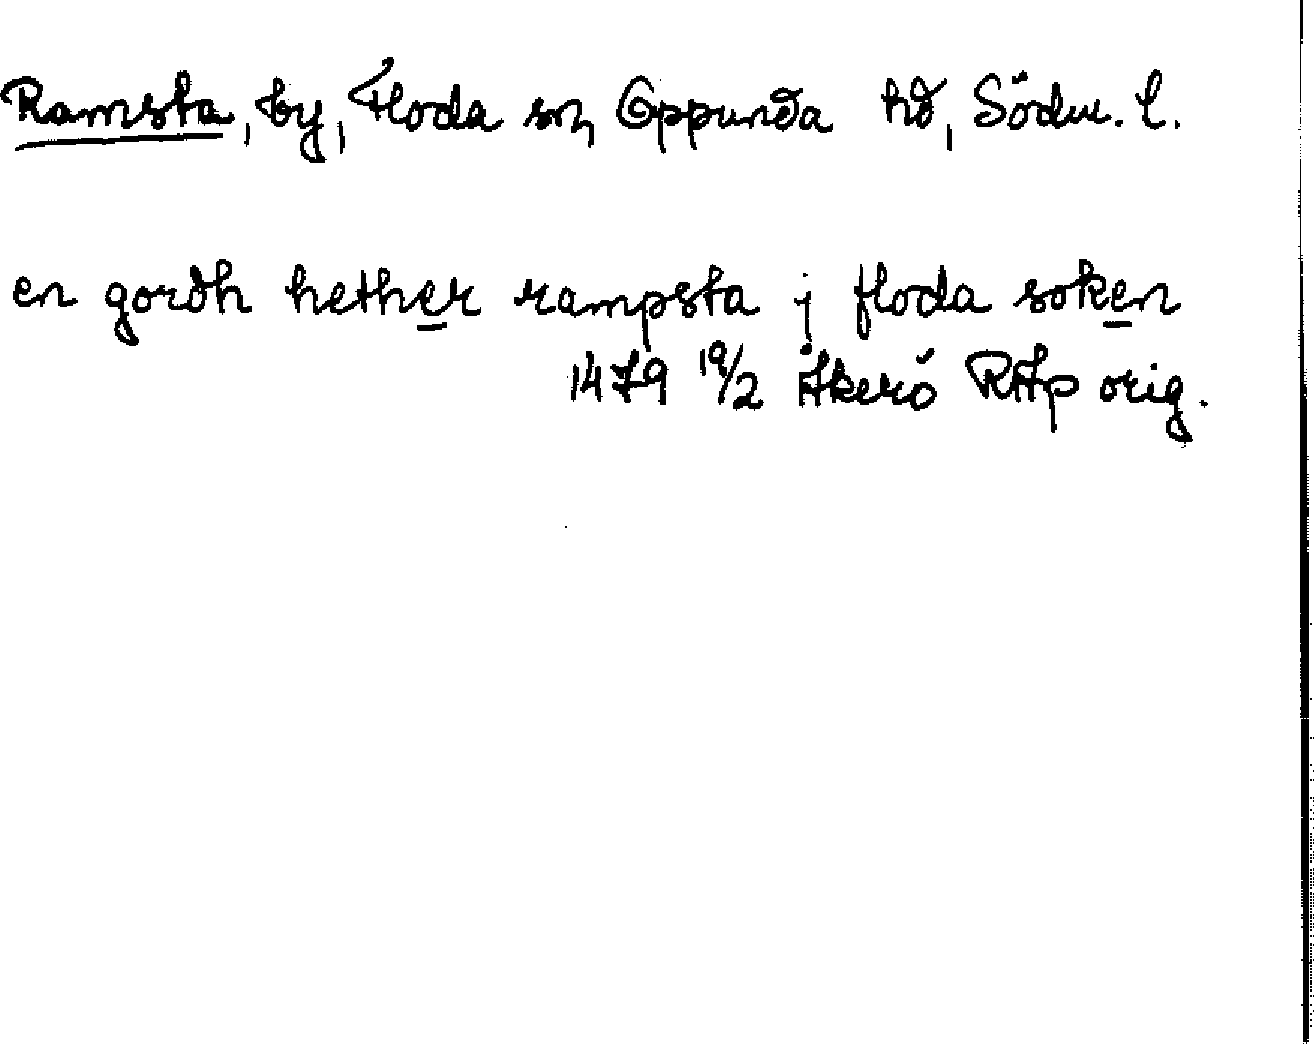 Ramsta, by, Floda sn, Oppunda hd, Söderm. l.
en gordh hether rampsta j floda soken
1479 19/2 Åkerö RAp orig.